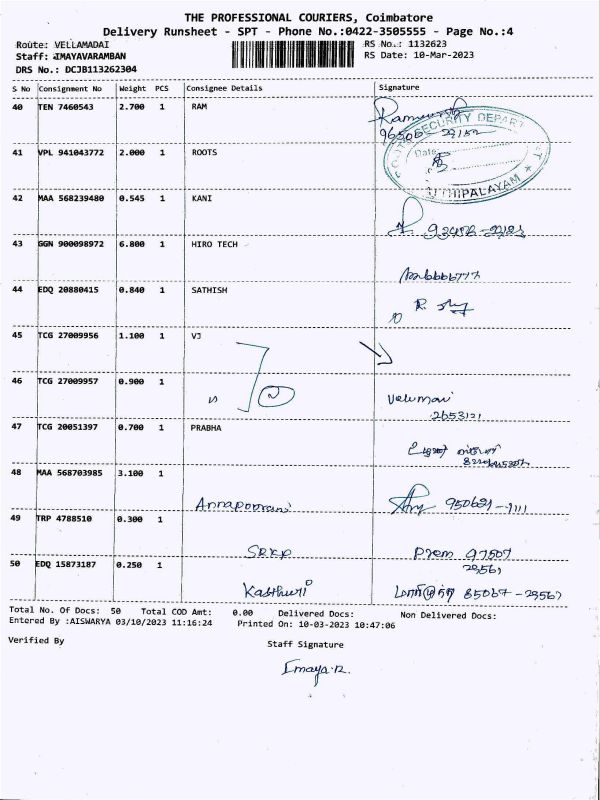 THE PROFESSIONAL COURIERS, Coimbatore
Delivery Runsheet - SPT - Phone No.:0422-3505555 - Page No.:4
Route: VELLAMADAI RS No.: 1132623
Staff: IMAYAVARAMBAN RS Date: 10-Mar-2023
DRS No.: DCJB113262304
S No Consignment No Weight PCS Consignee Details Signature
40 TEN 7460543 2.700 1 RAM
SECURITY DEPART
Date
41 VPL 941043772 2.000 1 ROOTS
42 MAA 568239480 0.545 1 KANI
43 GGN 900098972 6.800 1 HIRO TECH
44 EDQ 20880415 0.840 1 SATHISH
45 TCG 27009956 1.100 1 VJ
46 TCG 27009957 0.900 1 Velumani
2653121
47 TCG 20051397 0.700 1 PRABHA
48 MAA 568703985 3.100 1 Annapoorani
49 TRP 4788510 0.300 1 SRKP Prem 97507
50 EDQ 15873187 0.250 1 Kasthuri 85067-29567
Total No. Of Docs: 50 Total COD Amt: 0.00 Delivered Docs: Non Delivered Docs:
Entered By :AISWARYA 03/10/2023 11:16:24 Printed On: 10-03-2023 10:47:06
Verified By Staff Signature
Imaya.R.